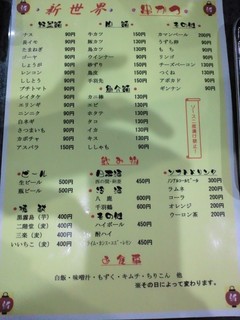 新世界 串カツ
野菜類
ナス 90円
長イモ 90円
たまねぎ 90円
ゴーヤ 90円
ししょう 90円
レンコン 90円
しいたけ 90円
プチトマト 90円
シイタケ 90円
エリンギ 90円
コンニャク 90円
ネギ 90円
さつまいも 90円
カボチャ 90円
アスパラ 150円
肉類
牛カツ 150円
豚カツ 150円
鳥カツ 150円
ウインナー 90円
しょうが 90円
ゆず 90円
魚介類
キス 90円
エビ 150円
イカ 90円
タコ 90円
ししゃも 90円
その他
キャンベール 200円
うずら卵 90円
もち 90円
リンゴ 90円
チーズベーコン 150円
つくね 200円
アボカド 90円
ギンナン 90円
ソース二度漬け禁止
飲み物
ビール
生ビール 500円
瓶ビール 500円
焼酎
黒霧島(芋) 400円
二階堂(麦) 400円
三楽(麦) 400円
いいちこ(麦) 400円
日本酒
450円
八鹿 600円
千羽鶴 600円
その他
ハイボール 450円
酎ハイ 450円
ソフトドリンク
ノンアルコールビール 300円
ラムネ 200円
コーラ 200円
オレンジ 200円
ウーロン茶 200円
白飯・味噌汁・もずく・キムチ・ちりこん 他
※その日によって変わります。